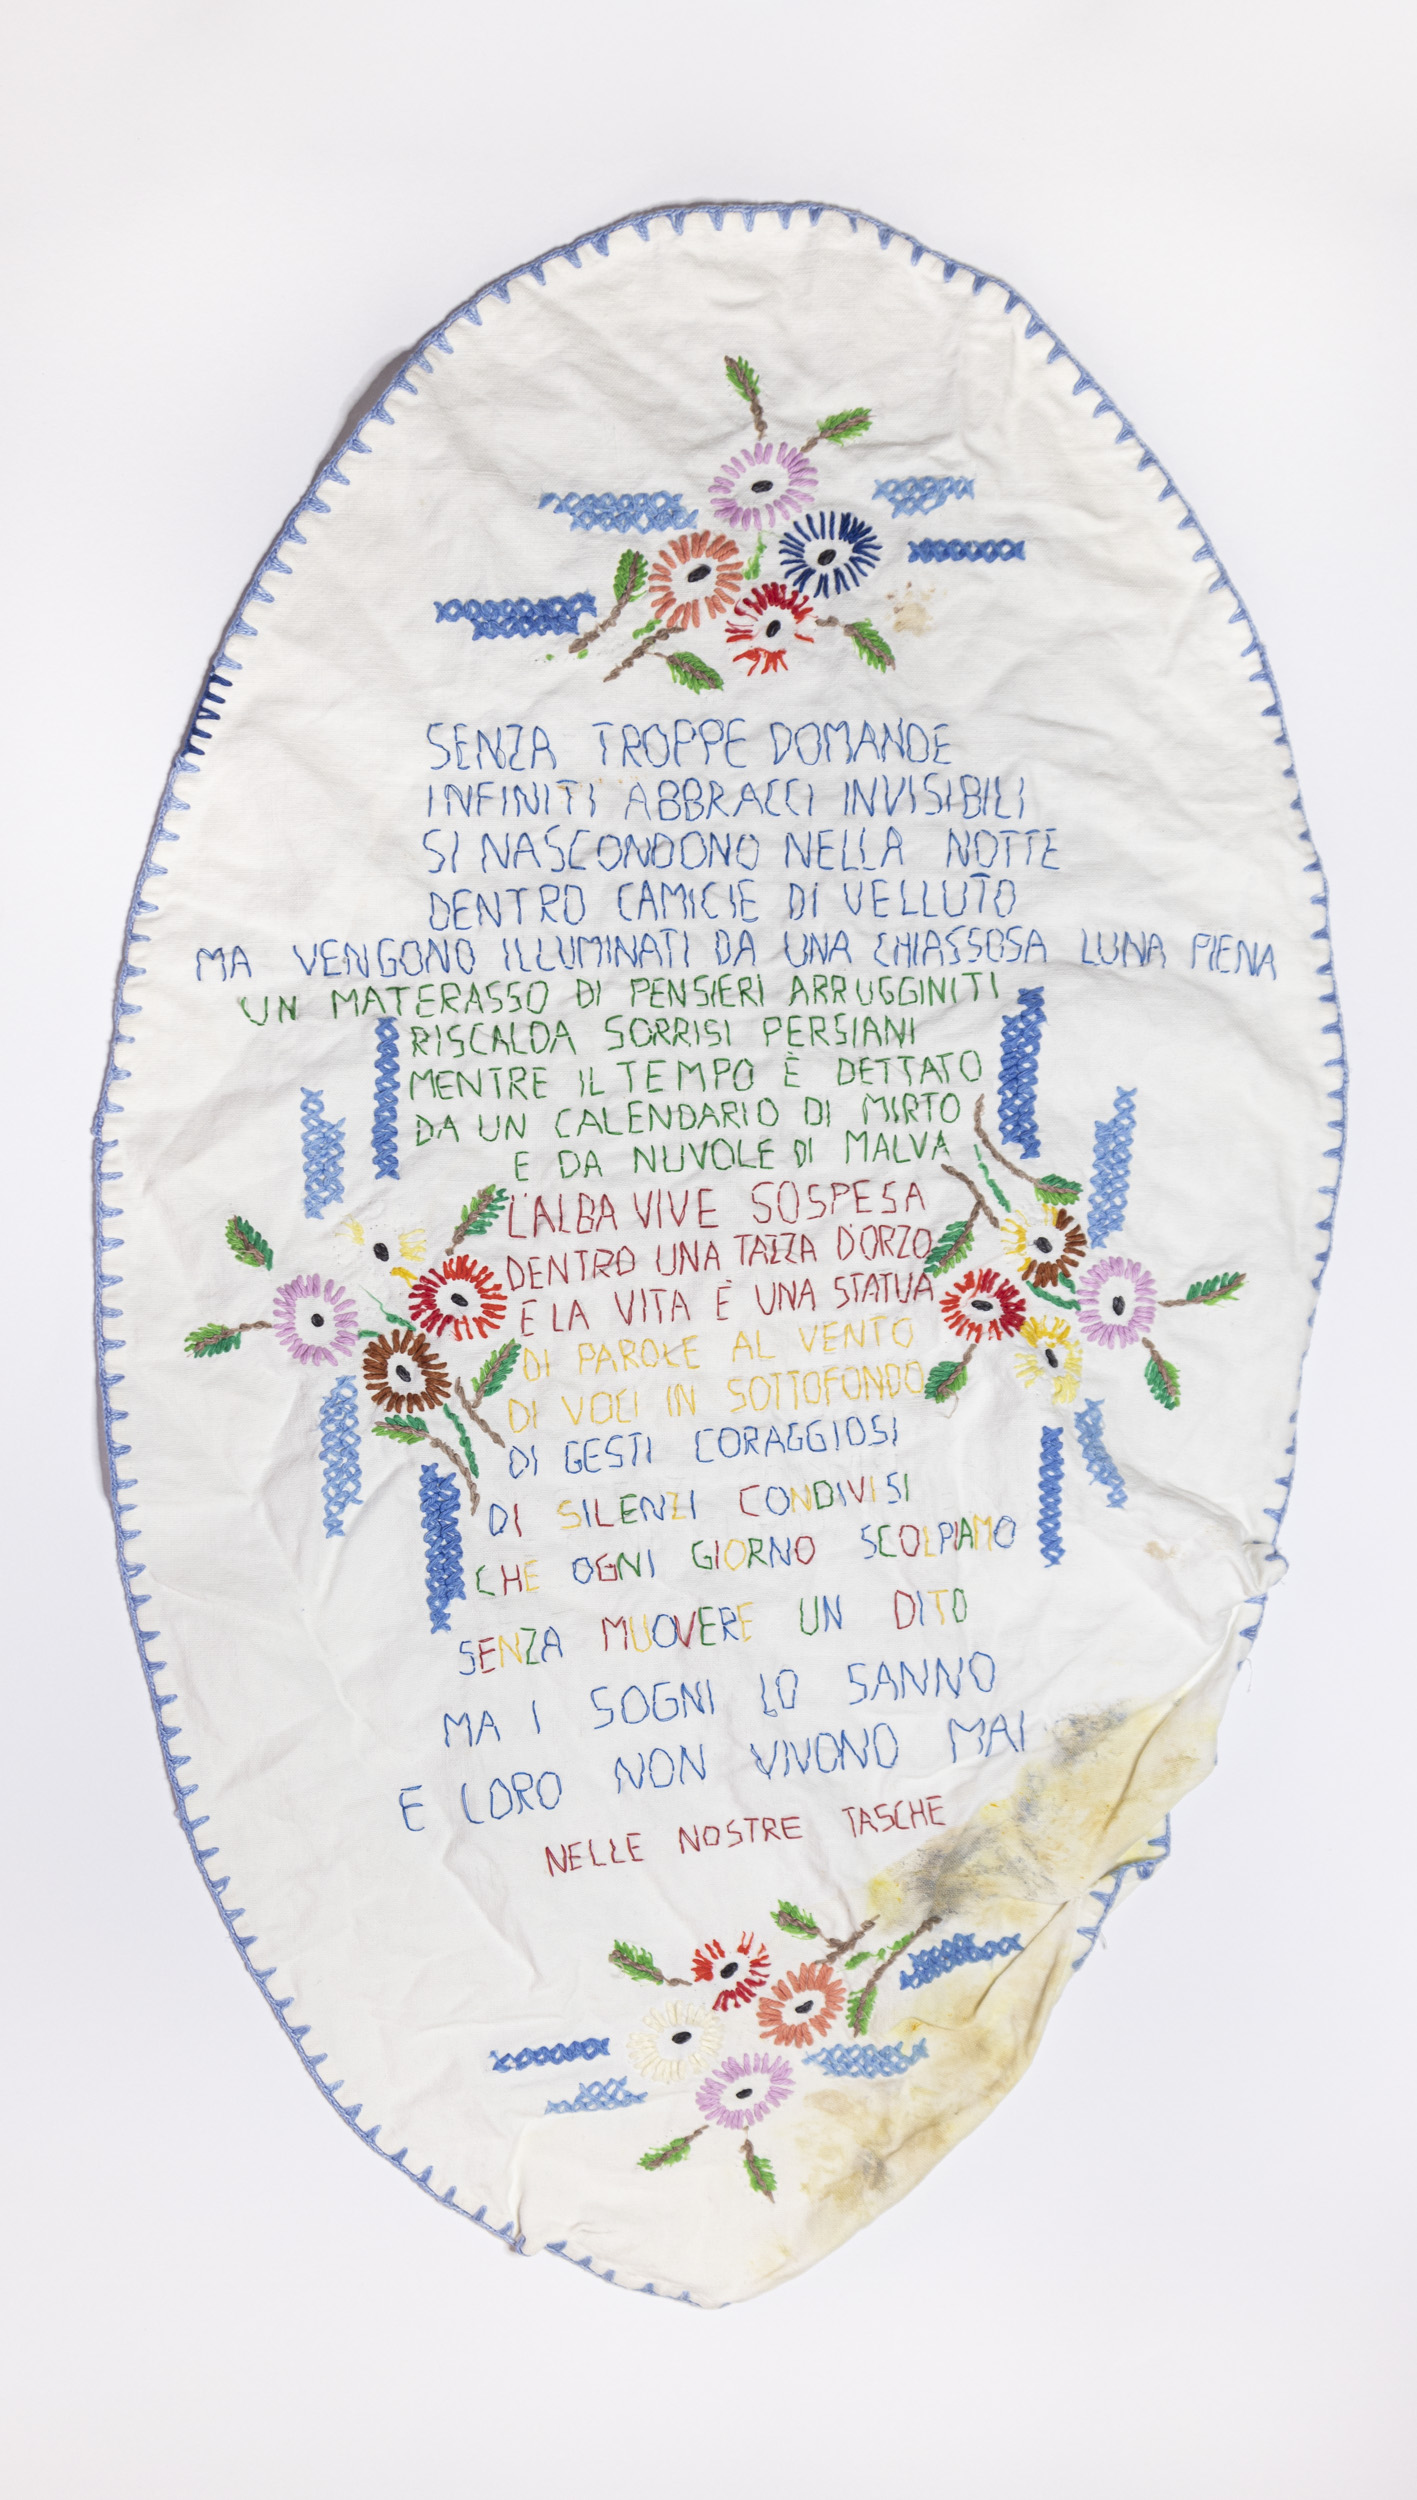 SENZA TROPPE DOMANDE
INFINITI ABBRACCI INVISIBILI
SI NASCONDONO NELLA NOTTE
DENTRO CAMICIE DI VELLUTO
MA VENGONO ILLUMINATI DA UNA CHIASSOSA LUNA PIENA
UN MATERASSO DI PENSIERI ARRUGGINITI
RISCALDA SORRISI PERSIANI
MENTRE IL TEMPO È DETTATO
DA UN CALENDARIO DI MIRTO
E DA NUVOLE DI MALVA
L'ALBA VIVE SOSPESA
DENTRO UNA TAZZA D'ORZO
E LA VITA È UNA STATUA
DI PAROLE AL VENTO
DI VOCI IN SOTTOFONDO
DI GESTI CORAGGIOSI
DI SILENZI CONDIVISI
CHE OGNI GIORNO SCOLPIAMO
SENZA MUOVERE UN DITO
MA I SOGNI LO SANNO
E LORO NON VIVONO MAI
NELLE NOSTRE TASCHE